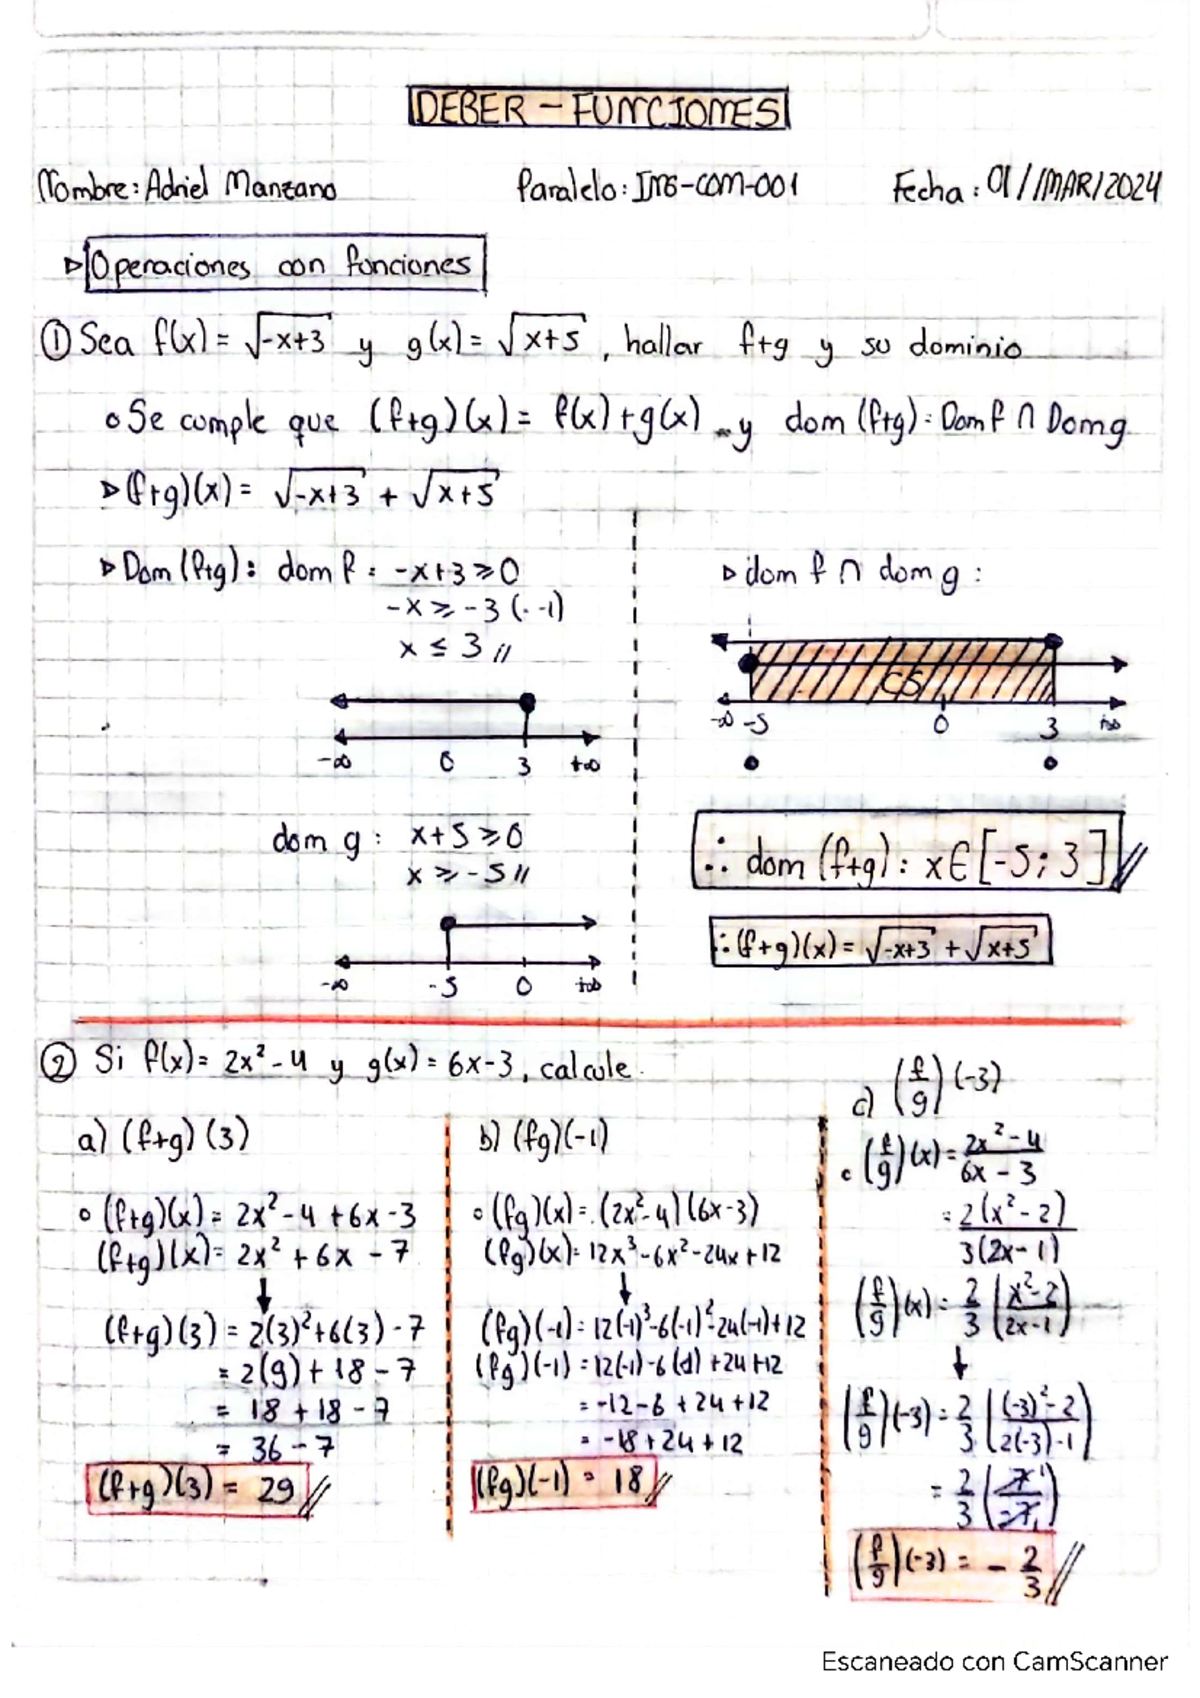 DEBER - FUNCIONES
Nombre: Adriel Manzano Paralelo: ING-COM-001 Fecha: 01//MAR/2024
▷ Operaciones con funciones
① Sea f(x) = √-x+3 y g(x) = √x+5 , hallar f+g y su dominio
o Se cumple que (f+g)(x) = f(x)+g(x) y dom (f+g): Dom f ∩ Dom g
▷ (f+g)(x) = √-x+3 + √x+5
▷ Dom (f+g): dom f: -x+3 ≥ 0
-x ≥ -3 (· -1)
x ≤ 3 //
-∞ 0 3 +∞
dom g : x+5 ≥ 0
x ≥ -5 //
-∞ -5 0 +∞
▷ dom f ∩ dom g :
CS
-∞ -5 0 3 +∞
∴ dom (f+g): x ∈ [-5; 3] //
∴ (f+g)(x) = √-x+3 + √x+5
② Si f(x) = 2x² - 4 y g(x) = 6x-3, calcule.
a) (f+g)(3)
o (f+g)(x) = 2x² - 4 + 6x - 3
(f+g)(x) = 2x² + 6x - 7
↓
(f+g)(3) = 2(3)² + 6(3) - 7
= 2(9) + 18 - 7
= 18 + 18 - 7
= 36 - 7
(f+g)(3) = 29 //
b) (fg)(-1)
o (fg)(x) = (2x²-4)(6x-3)
(fg)(x) = 12x³ - 6x² - 24x + 12
↓
(fg)(-1) = 12(-1)³ - 6(-1)² - 24(-1) + 12
(fg)(-1) = 12(-1) - 6(1) + 24 + 12
= -12 - 6 + 24 + 12
= -18 + 24 + 12
(fg)(-1) = 18 //
c) (f/g)(-3)
o (f/g)(x) = 2x² - 4 / 6x - 3
= 2(x² - 2) / 3(2x - 1)
(f/g)(x) = 2/3 (x²-2 / 2x-1)
↓
(f/g)(-3) = 2/3 ((-3)² - 2 / 2(-3) - 1)
= 2/3 (7 1 / -7 1)
(f/g)(-3) = - 2/3 //
Escaneado con CamScanner